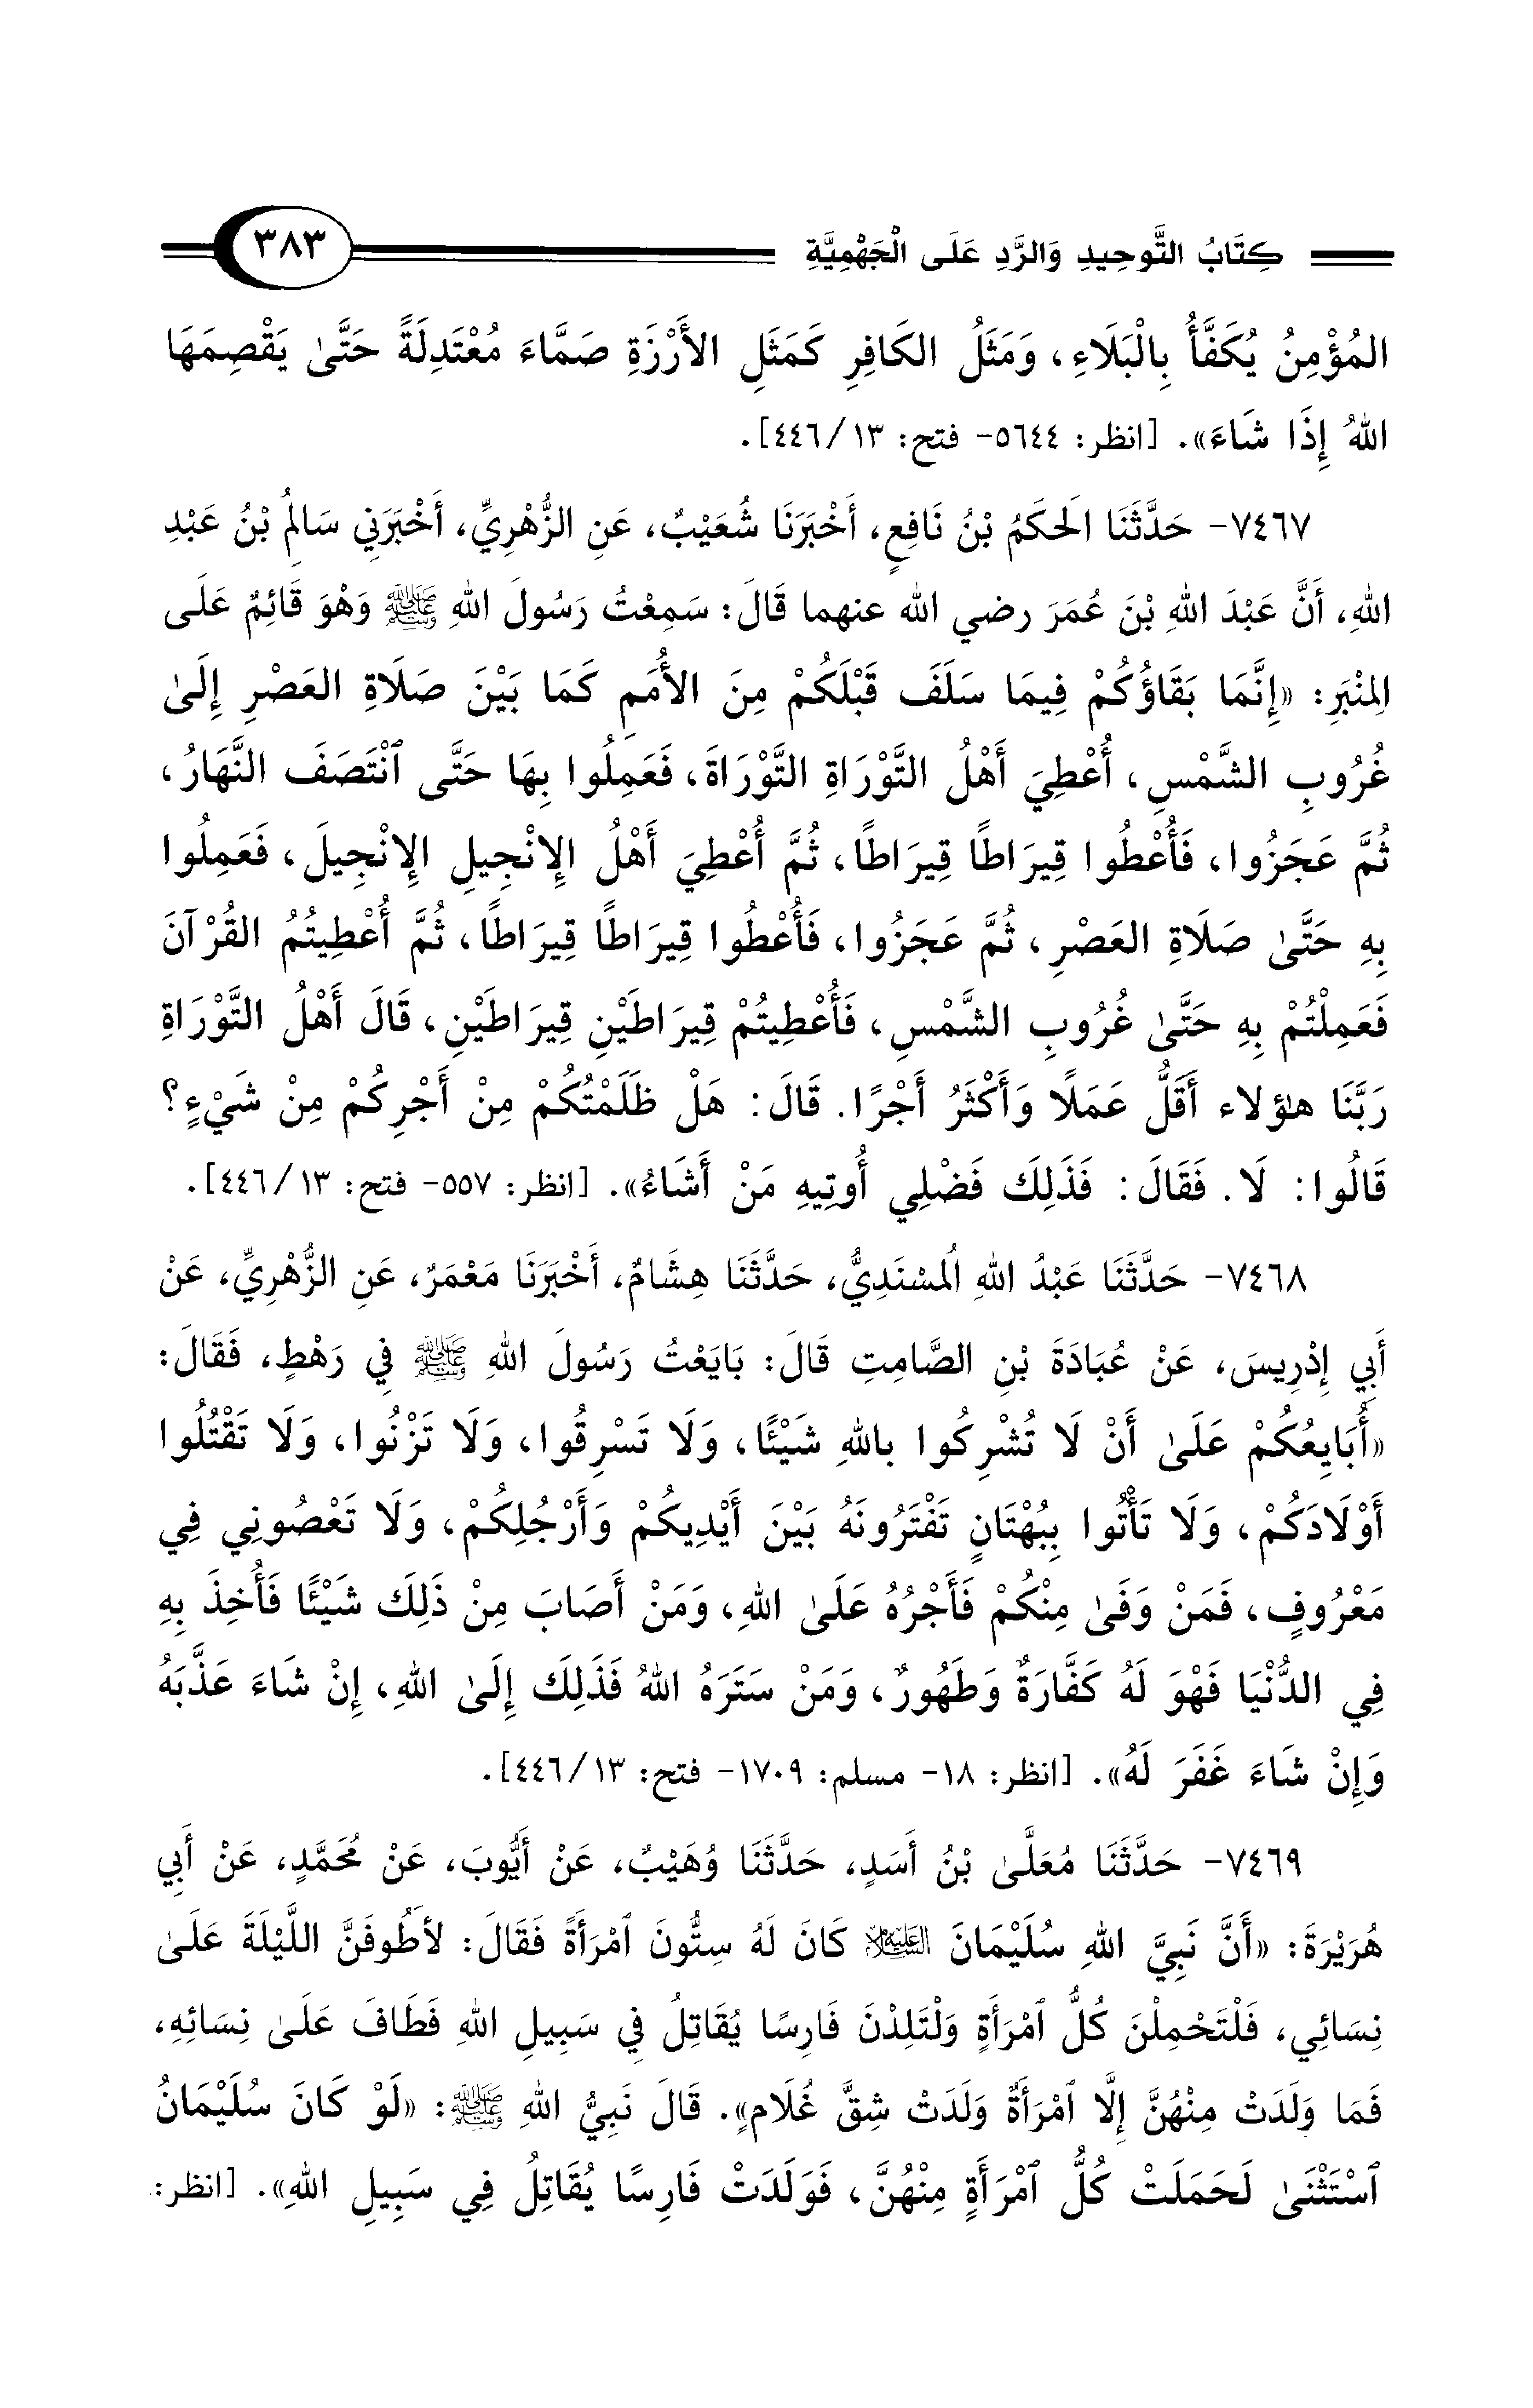 كِتَابُ التَّوحِيدِ وَالرَّدِ عَلَى الْجَهْمِيَّةِ ٣٨٣
المُؤْمِنُ يُكَفَّأُ بِالْبَلَاءِ، وَمَثَلُ الكَافِرِ كَمَثَلِ الأَرْزَةِ صَمَّاءَ مُعْتَدِلَةً حَتَّىٰ يَقْصِمَهَا
اللهُ إِذَا شَاءَ». [انظر: ٥٦٤٤- فتح: ١٣/ ٤٤٦].
٧٤٦٧- حَدَّثَنَا الَحكَمُ بْنُ نَافِعٍ، أَخْبَرَنَا شُعَيْبٌ، عَنِ الزُّهْرِيِّ، أَخْبَرَنِي سَالِمُ بْنُ عَبْدِ
اللهِ، أَنَّ عَبْدَ اللهِ بْنَ عُمَرَ رضي الله عنهما قَالَ: سَمِعْتُ رَسُولَ اللهِ ﷺ وَهْوَ قَائِمٌ عَلَى
الِمنْبَرِ: «إِنَّمَا بَقَاؤُكُمْ فِيمَا سَلَفَ قَبْلَكُمْ مِنَ الأُمَمِ كَمَا بَيْنَ صَلَاةِ العَصْرِ إِلَىٰ
غُرُوبِ الشَّمْسِ، أُعْطِيَ أَهْلُ التَّوْرَاةِ التَّوْرَاةَ، فَعَمِلُوا بِهَا حَتَّى ٱنْتَصَفَ النَّهَارُ،
ثُمَّ عَجَزُوا، فَأُعْطُوا قِيرَاطًا قِيرَاطًا، ثُمَّ أُعْطِيَ أَهْلُ الإِنْجِيلِ الإِنْجِيلَ، فَعَمِلُوا
بِهِ حَتَّىٰ صَلَاةِ العَصْرِ، ثُمَّ عَجَزُوا، فَأُعْطُوا قِيرَاطًا قِيرَاطًا، ثُمَّ أُعْطِيتُمُ القُرْآنَ
فَعَمِلْتُمْ بِهِ حَتَّىٰ غُرُوبِ الشَّمْسِ، فَأُعْطِيتُمْ قِيرَاطَيْنِ قِيرَاطَيْنِ، قَالَ أَهْلُ التَّوْرَاةِ
رَبَّنَا هٰؤلاء أَقَلُّ عَمَلًا وَأَكْثَرُ أَجْرًا. قَالَ: هَلْ ظَلَمْتُكُمْ مِنْ أَجْرِكُمْ مِنْ شَيْءٍ؟
قَالُوا: لَا. فَقَالَ: فَذَلِكَ فَضْلِي أُوتِيهِ مَنْ أَشَاءُ». [انظر: ٥٥٧- فتح: ١٣/ ٤٤٦].
٧٤٦٨- حَدَّثَنَا عَبْدُ اللهِ الُمسْنَدِيُّ، حَدَّثَنَا هِشَامٌ، أَخْبَرَنَا مَعْمَرٌ، عَنِ الزُّهْرِيِّ، عَنْ
أَبِي إِدْرِيسَ، عَنْ عُبَادَةَ بْنِ الصَّامِتِ قَالَ: بَايَعْتُ رَسُولَ اللهِ ﷺ فِي رَهْطٍ، فَقَالَ:
«أُبَايِعُكُمْ عَلَىٰ أَنْ لَا تُشْرِكُوا باللهِ شَيْئًا، وَلَا تَسْرِقُوا، وَلَا تَزْنُوا، وَلَا تَقْتُلُوا
أَوْلَادَكُمْ، وَلَا تَأْتُوا بِبُهْتَانٍ تَفْتَرُونَهُ بَيْنَ أَيْدِيكُمْ وَأَرْجُلِكُمْ، وَلَا تَعْصُونِي فِي
مَعْرُوفٍ، فَمَنْ وَفَىٰ مِنْكُمْ فَأَجْرُهُ عَلَىٰ اللهِ، وَمَنْ أَصَابَ مِنْ ذَلِكَ شَيْئًا فَأُخِذَ بِهِ
فِي الدُّنْيَا فَهْوَ لَهُ كَفَّارَةٌ وَطَهُورٌ، وَمَنْ سَتَرَهُ اللهُ فَذَلِكَ إِلَىٰ اللهِ، إِنْ شَاءَ عَذَّبَهُ
وَإِنْ شَاءَ غَفَرَ لَهُ». [انظر: ١٨- مسلم: ١٧٠٩- فتح: ١٣/ ٤٤٦].
٧٤٦٩- حَدَّثَنَا مُعَلَّىٰ بْنُ أَسَدٍ، حَدَّثَنَا وُهَيْبٌ، عَنْ أَيُّوبَ، عَنْ مُحَمَّدٍ، عَنْ أَبِي
هُرَيْرَةَ: «أَنَّ نَبِيَّ اللهِ سُلَيْمَانَ عليه السلام كَانَ لَهُ سِتُّونَ ٱمْرَأَةً فَقَالَ: لأَطُوفَنَّ اللَّيْلَةَ عَلَىٰ
نِسَائِي، فَلْتَحْمِلْنَ كُلُّ ٱمْرَأَةٍ وَلْتَلِدْنَ فَارِسًا يُقَاتِلُ فِي سَبِيلِ اللهِ فَطَافَ عَلَىٰ نِسَائِهِ،
فَمَا وَلَدَتْ مِنْهُنَّ إِلَّا ٱمْرَأَةٌ وَلَدَتْ شِقَّ غُلَامٍ». قَالَ نَبِيُّ اللهِ ﷺ: «لَوْ كَانَ سُلَيْمَانُ
ٱسْتَثْنَىٰ لَحَمَلَتْ كُلُّ ٱمْرَأَةٍ مِنْهُنَّ، فَوَلَدَتْ فَارِسًا يُقَاتِلُ فِي سَبِيلِ اللهِ». [انظر: